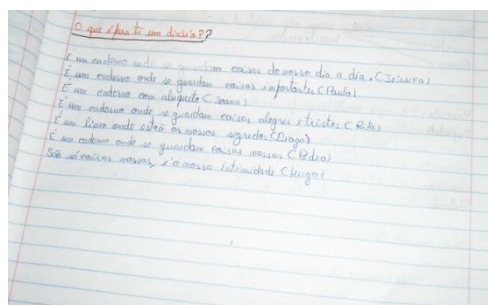 O que é para ti um diário??
É um caderno onde se guardam coisas do nosso dia a dia. (Jéssica)
É um caderno onde se guardam coisas importantes (Paula)
É um caderno com (Joana)
É um caderno onde se guardam coisas alegres e tristes (Rita)
É um livro onde estão os nossos segredos (Diogo)
É um caderno onde se guardam coisas nossas (Pedro)
São só coisas nossas, é a nossa intimidade (Hugo)